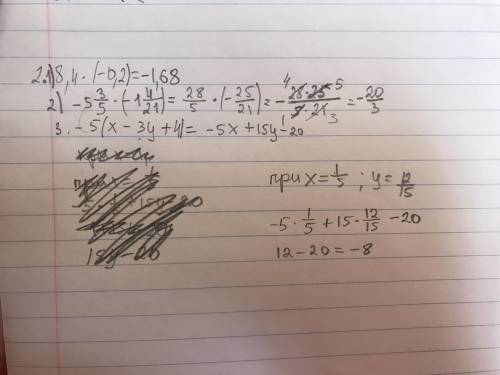 2.1) 8,4 · (-0,2) = -1,68
2) -5 3/5 · (-1 4/21) = 28/5 · (-25/21) = - 28·25/5·21 = -20/3
4 5 1 3
3. -5(x - 3y + 4) = -5x + 15y - 20
при x = 1/5 ; y = 12/15
-5 · 1/5 + 15 · 12/15 - 20
12 - 20 = -8
18y - 20